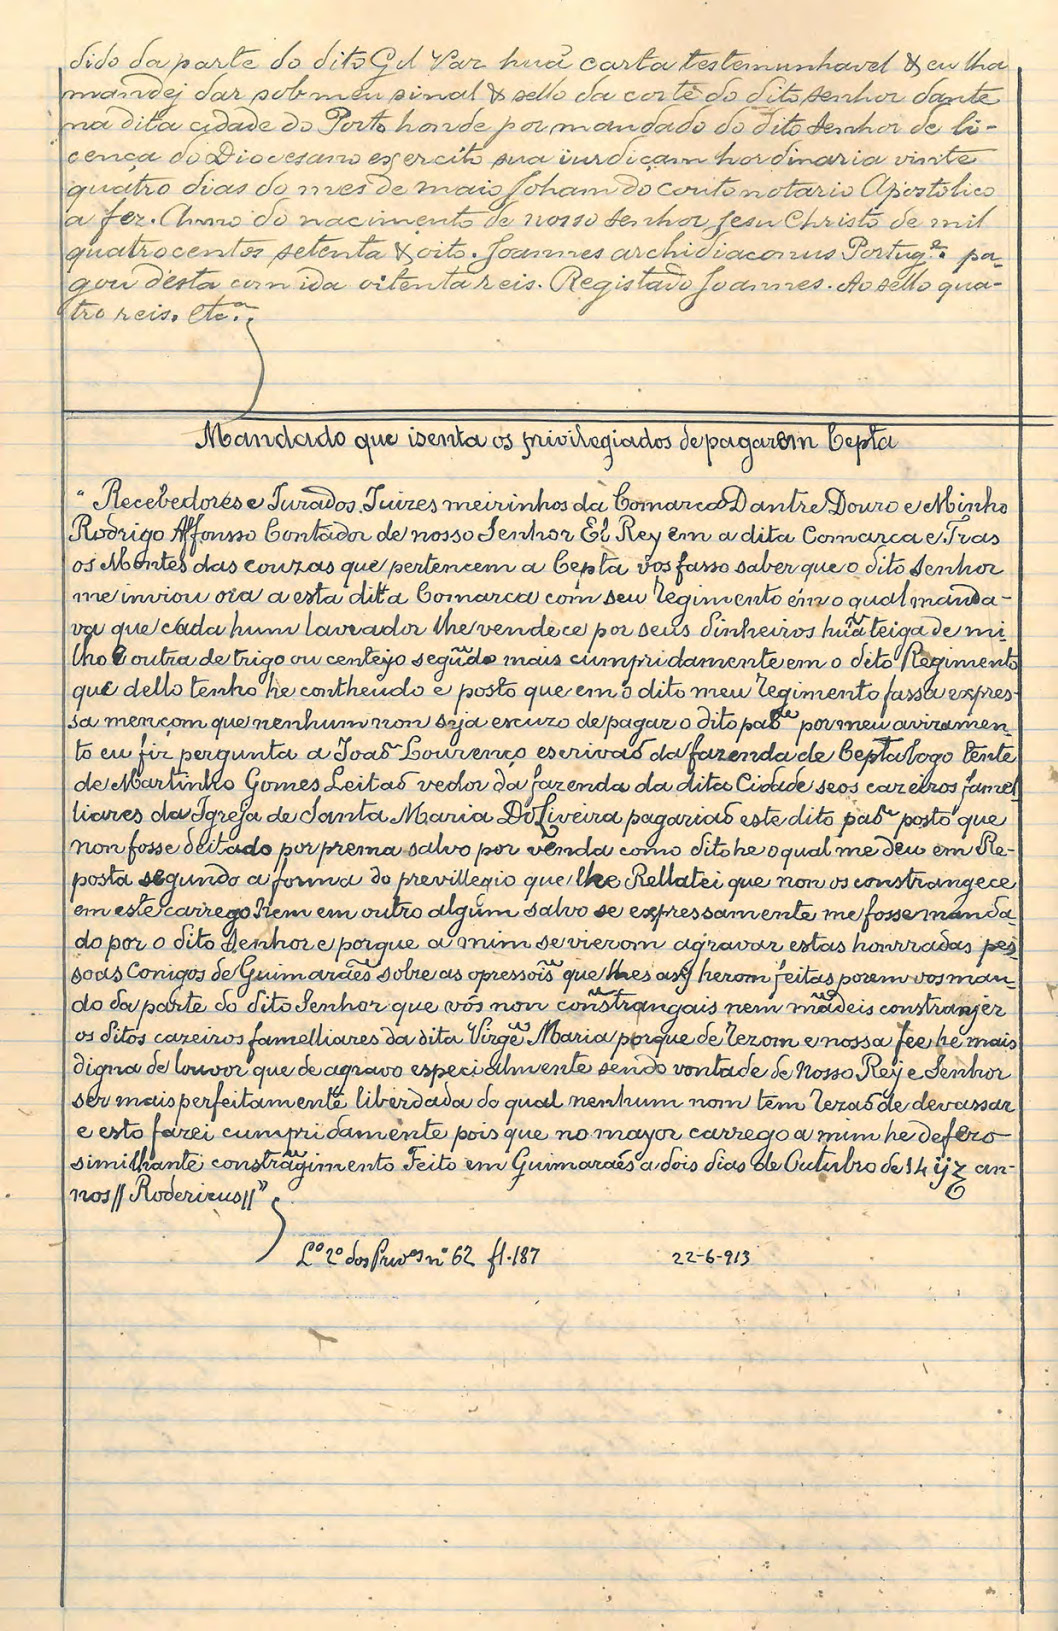 dido da parte do dito Gil Vaz huã carta testemunhavel & eu lha
mandej dar sob meu sinal & sello da corte do dito senhor dante
na dita cidade do Porto honde por mandado do dito senhor de li-
cença do Diocesano exercito sua iurdiçam hordinaria vinte
quatro dias do mes de maio Joham do couto notario Apostolico
a fez. Anno do nacimento de nosso senhor Jesu Christo de mil
quatrocentos setenta & oito. Joannes archidiaconus Portug.ª pa-
gou desta com ida oitenta reis. Registado Joannes. Ao sello qua-
tro reis. Etc.ª.
Mandado que isenta os privilegiados de pagarem Cepta
"Recebedores e Jurados Juizes meirinhos da Comarca Dantre Douro e Minho
Rodrigo Affonsso Contador de nosso Senhor El Rey em a dita Comarca e Tras
os Montes das couzas que pertencem a Cepta vos fasso saber que o dito senhor
me inviou ora a esta dita Comarca com seu regimento em o qual manda-
va que cada hum lavrador lhe vendece por seus dinheiros huã teiga de mi-
lho e outra de trigo ou centejo segũdo mais cumpridamente em o dito Regimento
que dello tenho he contheudo e posto que em o dito meu regimento fassa expres-
sa mençom que nenhum non seja escuzo de pagar o dito paõ por meu aviramen-
to eu fiz pergunta a Joaõ Lourenço escrivaõ da fazenda de Cepta logo tente
de Martinho Gomes Leitaõ vedor da fazenda da dita Cidade se os cazeiros famel-
liares da Igreja de Santa Maria Doliveira pagariaõ este dito paõ posto que
non fosse deitado por prema salvo por vẽnda como dito he o qual me deu em Re-
posta segundo a forma do previllegio que lhe Rellatei que non os constrangece
em este carrego nem em outro algum salvo se expressamente me fosse manda-
do por o dito senhor e porque a mim se vierom agravar estas honrradas pes-
soas Conigos de Guimarães sobre as opressoĩs que lhes asy herom feitas porem vos man-
do da parte do dito Senhor que vós non constrangais nem mãdeis constranjer
os ditos cazeiros famelliares da dita Virgẽ Maria porque de rezom e nossa fee he mais
digna de louvor que de agravo especialmente sendo vontade de Nosso Rey e Senhor
ser mais perfeitamente liberdada do qual nenhum nom tem rezaõ de devassar
e esto farei cumpridamente pois que no mayor carrego a mim he defezo
similhante constrãgimento Feito em Guimaraẽs a dois dias de Outubro de 14 ijz an-
nos // Rodericus //"
L.º 2.º dos Priv.os n.º 62 fl. 187 22-6-913